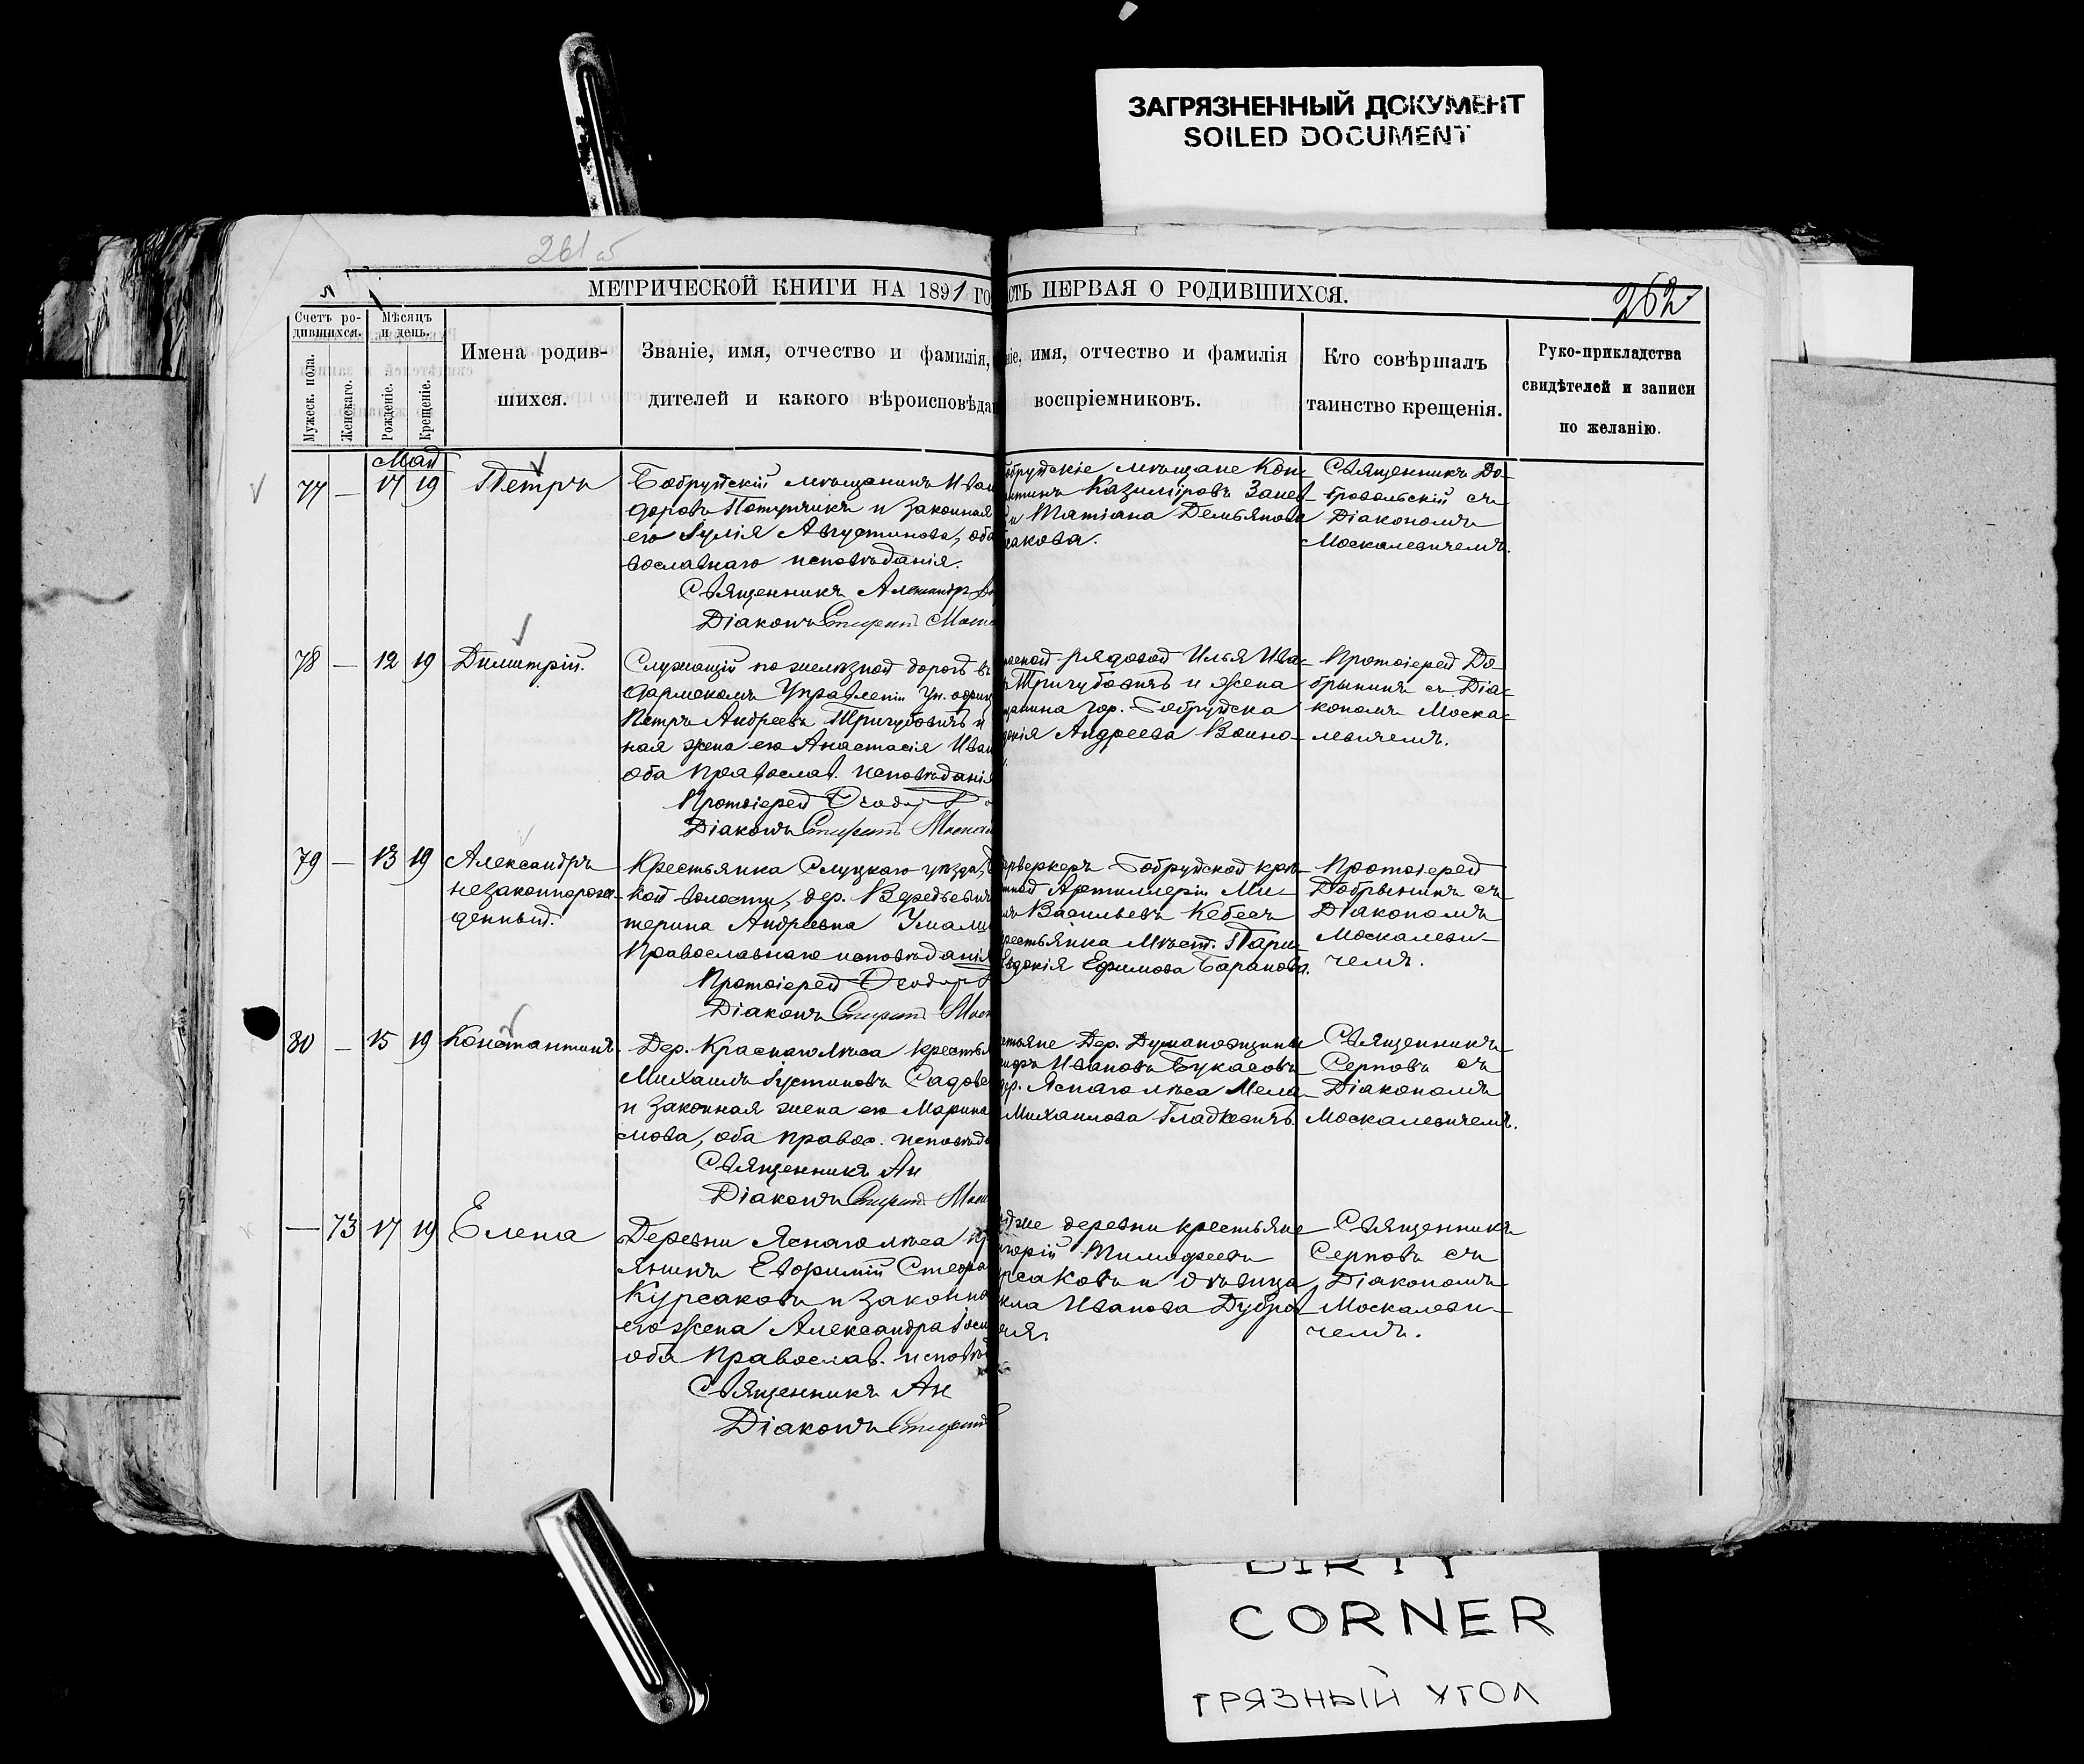 ЗАГРЯЗНЕННЫЙ ДОКУМЕНТ
SOILED DOCUMENT
261 об
МЕТРИЧЕСКОЙ КНИГИ НА 1891 ГО
СТЬ ПЕРВАЯ О РОДИВШИХСЯ.
262
Счетъ ро-
дившихся.
Мѣсяцъ
и день.
Мужеск. пола.
Женскаго.
Рожденіе.
Крещеніе.
Имена родив-
шихся.
Званіе, имя, отчество и фамилія,
дителей и какого вѣроисповѣда
ніе, имя, отчество и фамилія
воспріемниковъ.
Кто совѣршалъ
таинство крещенія.
Руко-прикладства
свидѣтелей и записи
по желанію.
Май
77 — 17 19 Петръ
Бобруйскій мѣщанинъ Иван
доровъ и законная
его Іулія Августинова, оба
вославнаго исповѣданія.
Священникъ Александръ До
Діаконъ Моск
обруйскіе мѣщане Кон-
Казиміровъ
и Матіана Демьянова
акова.
Священникъ До-
бровольскій съ
Діакономъ
Москалевичемъ.
78 — 12 19 Димитрій.
Служащій по желѣзной дорогѣ въ
дармскомъ Управленіи Ун. офиц
Петръ Андреевъ Тричубовичъ и
ная жена его Анастасія Иван
оба православ. исповѣданія
Протоіерей
Діаконъ Москал
рядовой Илья Ива-
Тричубовичъ и жена
щанина гор. Бобруйска
докія Андреева Воино-
Протоіерей До-
брынинъ съ Діа-
кономъ Моска-
левичемъ.
79 — 13 19 Александръ
незаконнорож-
денный.
Крестьянка Слуцкаго уѣзда,
кой волости, дер.
терина Андреевна
Православнаго исповѣданія
Протоіерей
Діаконъ Моск
ерверкеръ Бобруйской крѣ-
ной Артиллеріи Ми-
Васильевъ Кебесъ
рестьянка Мѣст. Пари-
Евдокія Ефимова Баранова.
Протоіерей
Добрынинъ съ
Діакономъ
Москалеви-
чемъ.
80 — 15 19 Константинъ.
Дер. Краснаго Лѣса крестья
Михаилъ Іустиновъ Садов
и законная жена его Марина
мова, оба правос. исповѣд
Священникъ Ан
Діаконъ Моск
стьяне Дер. Думановщины
Ивановъ Букасовъ
ер. Яснаго лѣса Мела-
Михаилова Гладкевичъ.
Священникъ
Серновъ съ
Діакономъ
Москалевичемъ.
— 73 17 19 Елена
Деревни Яснаго лѣса кр
янинъ Евфимій Стефа
Курсаковъ и законна
его жена Александра Іоси
оба православ. исповѣд
Священникъ Ан
Діаконъ
же деревни крестьяне
игорій Тимофеевъ
рсаковъ и дѣвица
кла Иванова Дубров-
Священникъ
Серновъ съ
Діакономъ
Москалеви-
чемъ.
DIRTY
CORNER
ГРЯЗНЫЙ УГОЛ